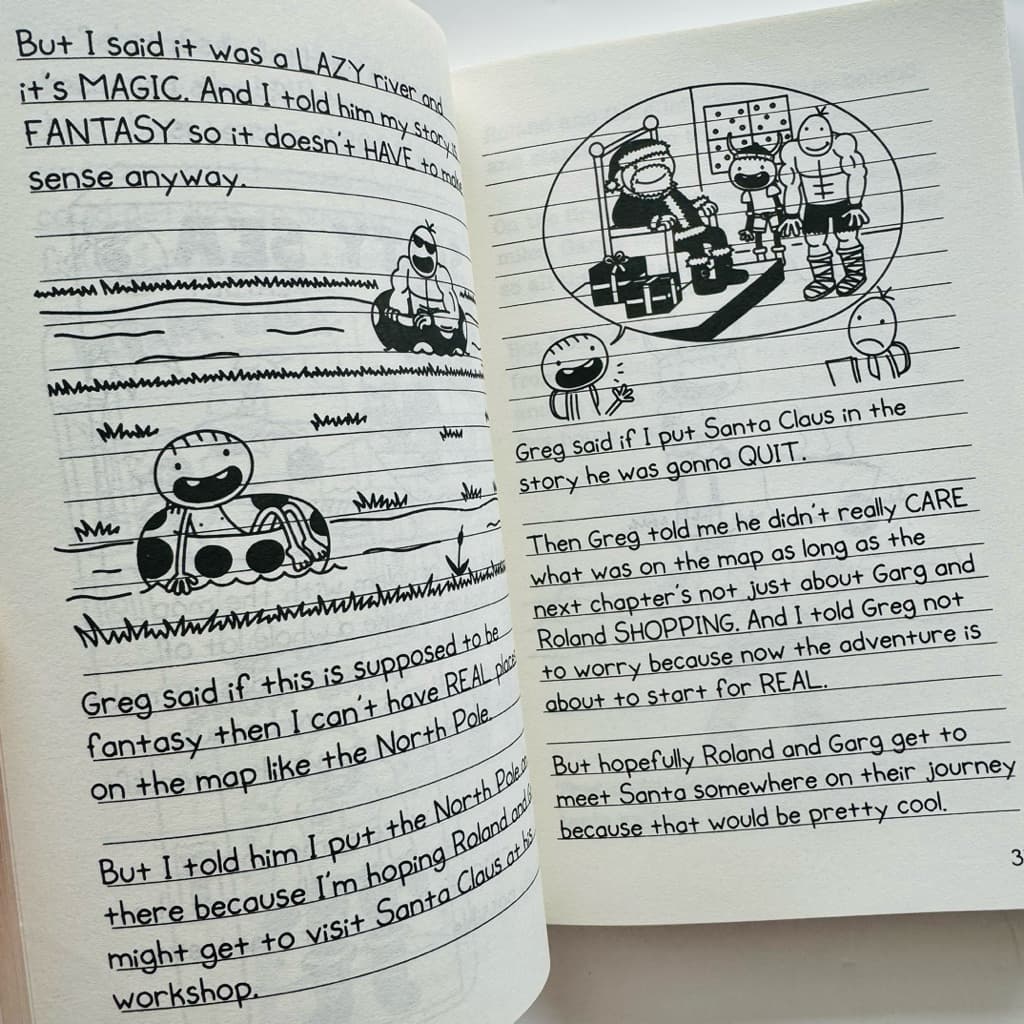 But I said it was a LAZY river and
it's MAGIC. And I told him my story is
FANTASY so it doesn't HAVE to make
sense anyway.
Greg said if this is supposed to be
fantasy then I can't have REAL places
on the map like the North Pole.
But I told him I put the North Pole on
there because I'm hoping Roland and
might get to visit Santa Claus at his
workshop.
Greg said if I put Santa Claus in the
story he was gonna QUIT.
Then Greg told me he didn't really CARE
what was on the map as long as the
next chapter's not just about Garg and
Roland SHOPPING. And I told Greg not
to worry because now the adventure is
about to start for REAL.
But hopefully Roland and Garg get to
meet Santa somewhere on their journey
because that would be pretty cool.